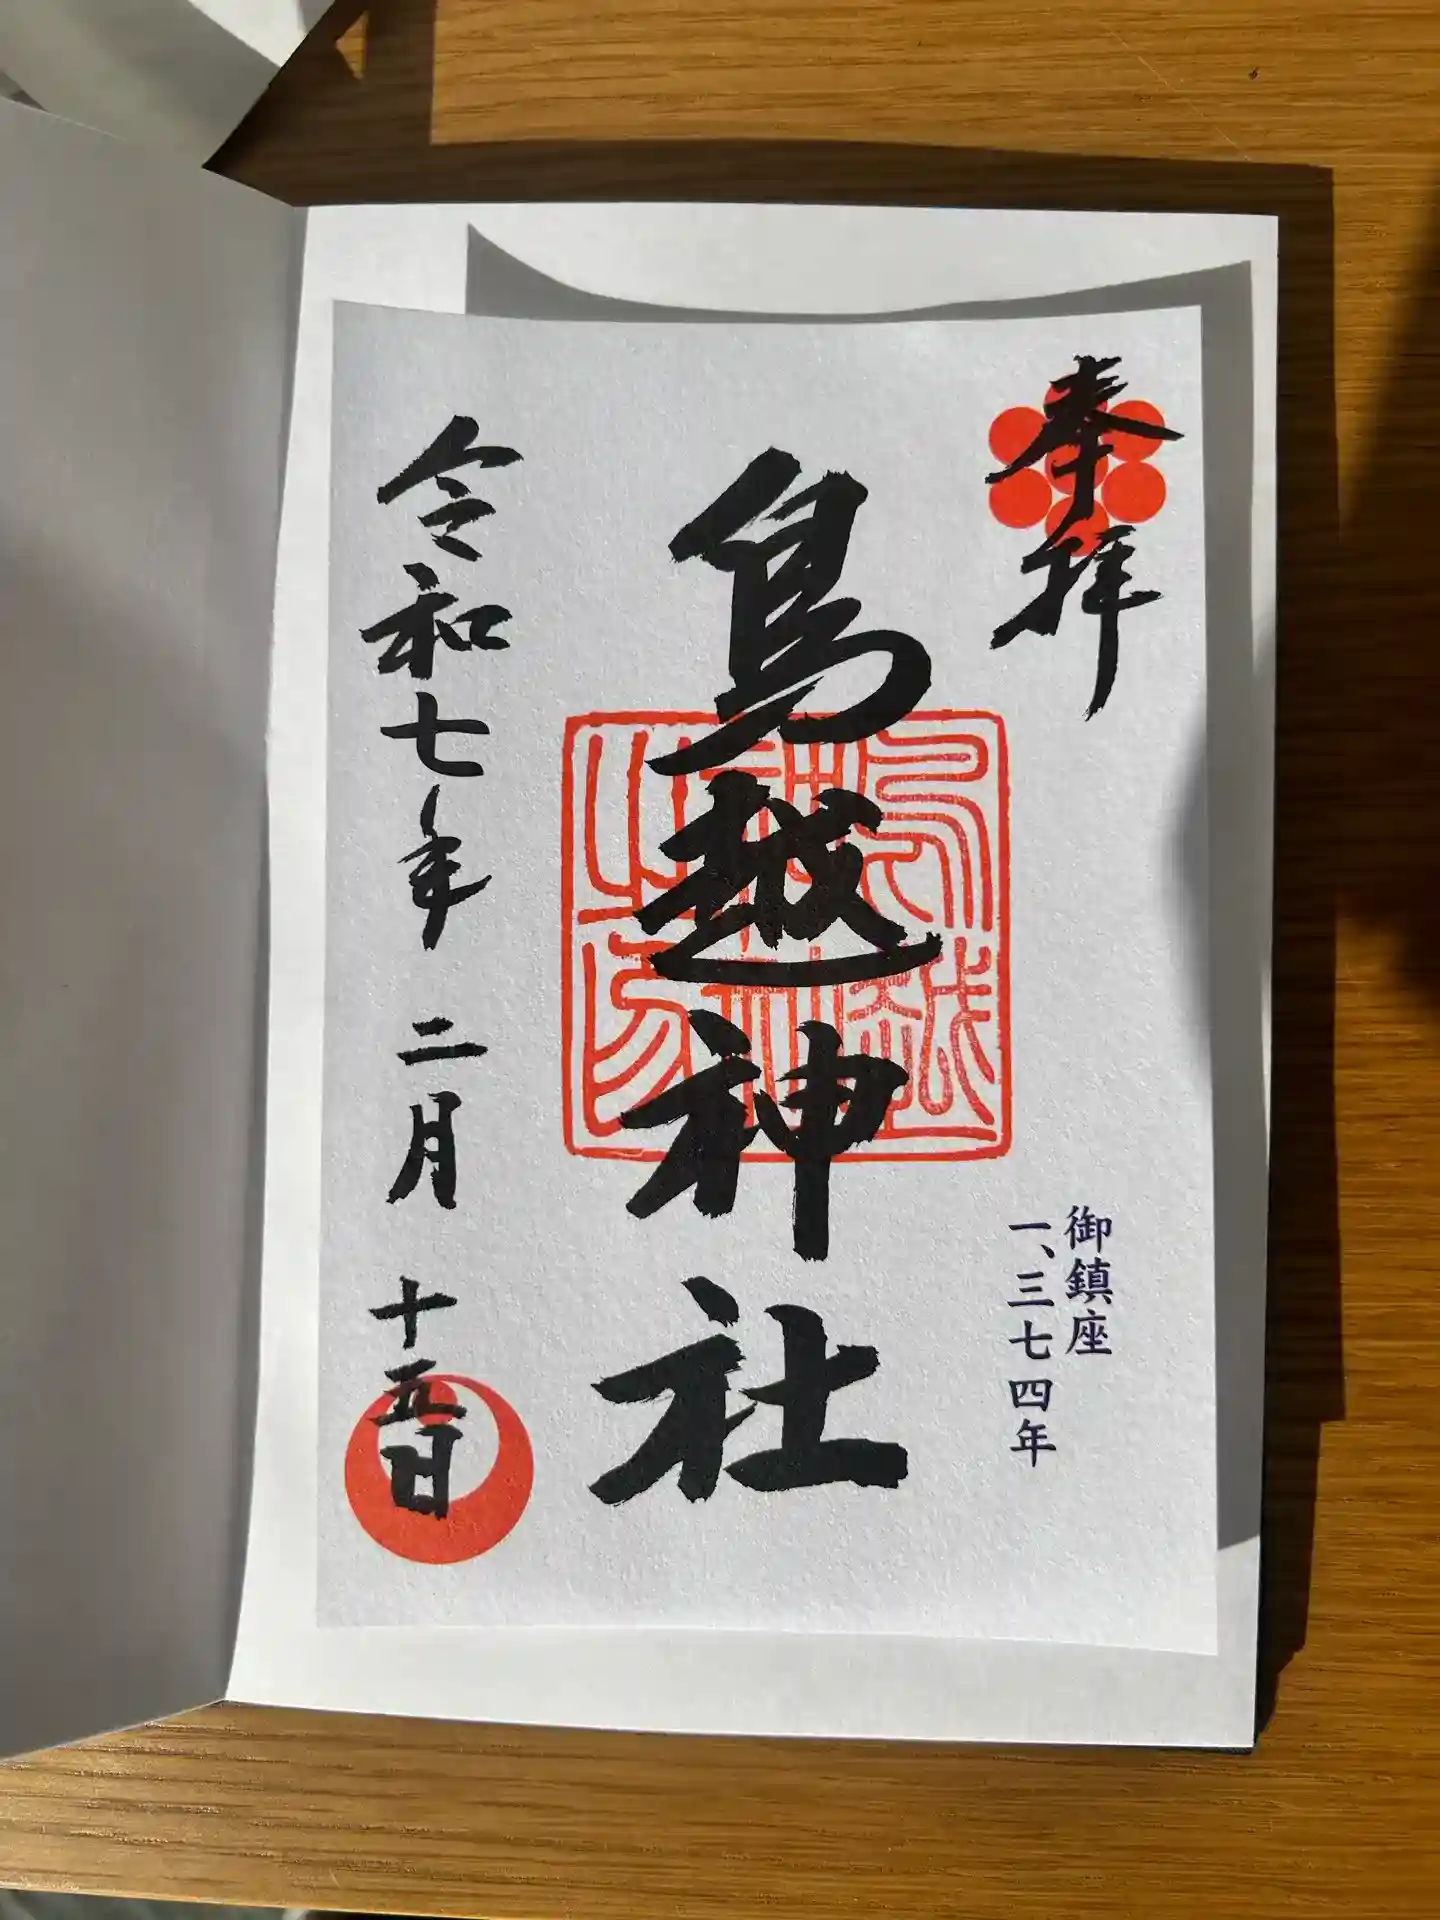 奉拝
御鎮座
一、三七四年
鳥越神社
令和七年 二月 十五日